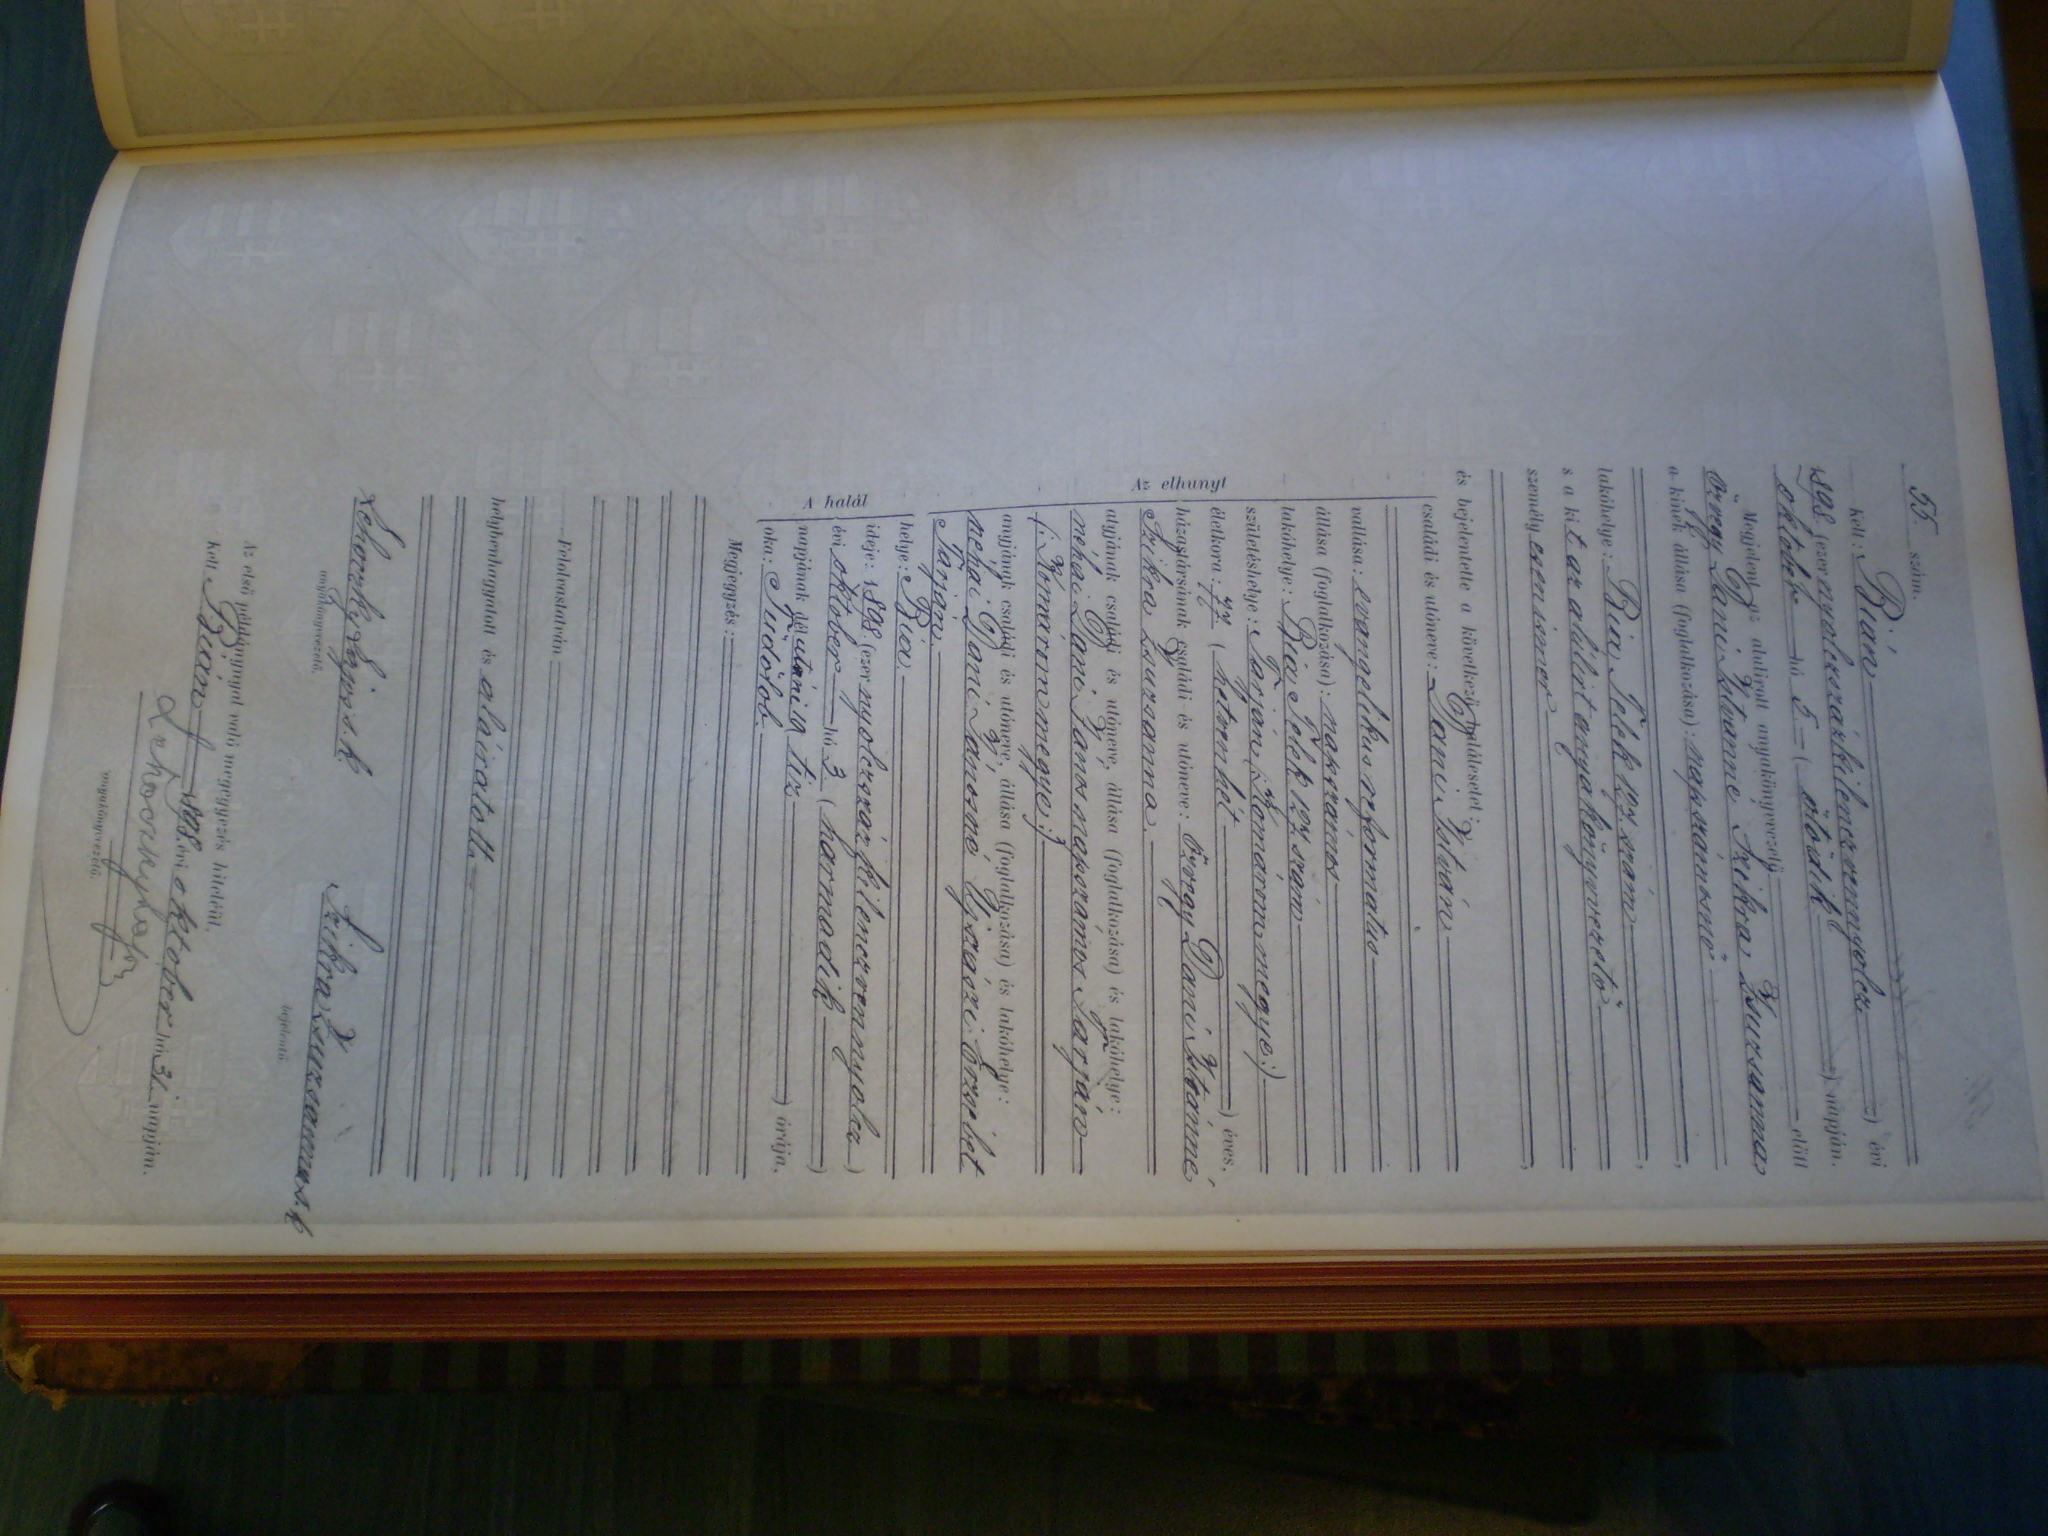 55. szám.
Kelt: Bián 
1898. (ezer nyolcszázkilenczvennyolcz) évi
október hó 5 (ötödik) napján.
Megjelent az alulírott anyakönyvvezető előtt
özvegy Dani Istvánné Szikra Zsuzsanna
a kinek állása (foglalkozása): napszámosnő,
lakóhelye: Bia, Telek szám,
s a kit az alulírt anyakönyvvezető
személyesen ismer,
és bejelentette a következő halálesetet:
Az elhunyt
családi és utóneve: Dani István
vallása: evangelikus református
állása (foglalkozása): napszámos
lakóhelye: Bia, Telek szám
születéshelye: Tarján (: Komárom megye :)
életkora: (hetvenhét) éves,
házastársának családi és utóneve: özvegy Dani Istvánné
Szikra Zsuzsanna.
atyjának családi és utóneve, állása (foglalkozása) és lakóhelye:
néhai Dani János napszámos Tarján
(: Komárom megye :)
anyjának családi és utóneve, állása (foglalkozása) és lakóhelye:
néhai Dani Jánosné Erzsébet
Tarján.
A halál
helye: Bia.
ideje: 1898. (ezer nyolczszázkilenczvennyolcz)
évi október hó 3 (harmadik)
napjának délutáni tíz órája.
oka: Tüdőlob.
Megjegyzés:
Felolvastatván
helybenhagyatott és aláíratott.
Lajos s. k.
anyakönyvvezető.
Szikra Zsuzsanna s. k.
bejelentő.
Az első példánynyal való megegyezés hiteléül,
kelt Bián 1898 évi október hó 31 napján.
anyakönyvvezető.